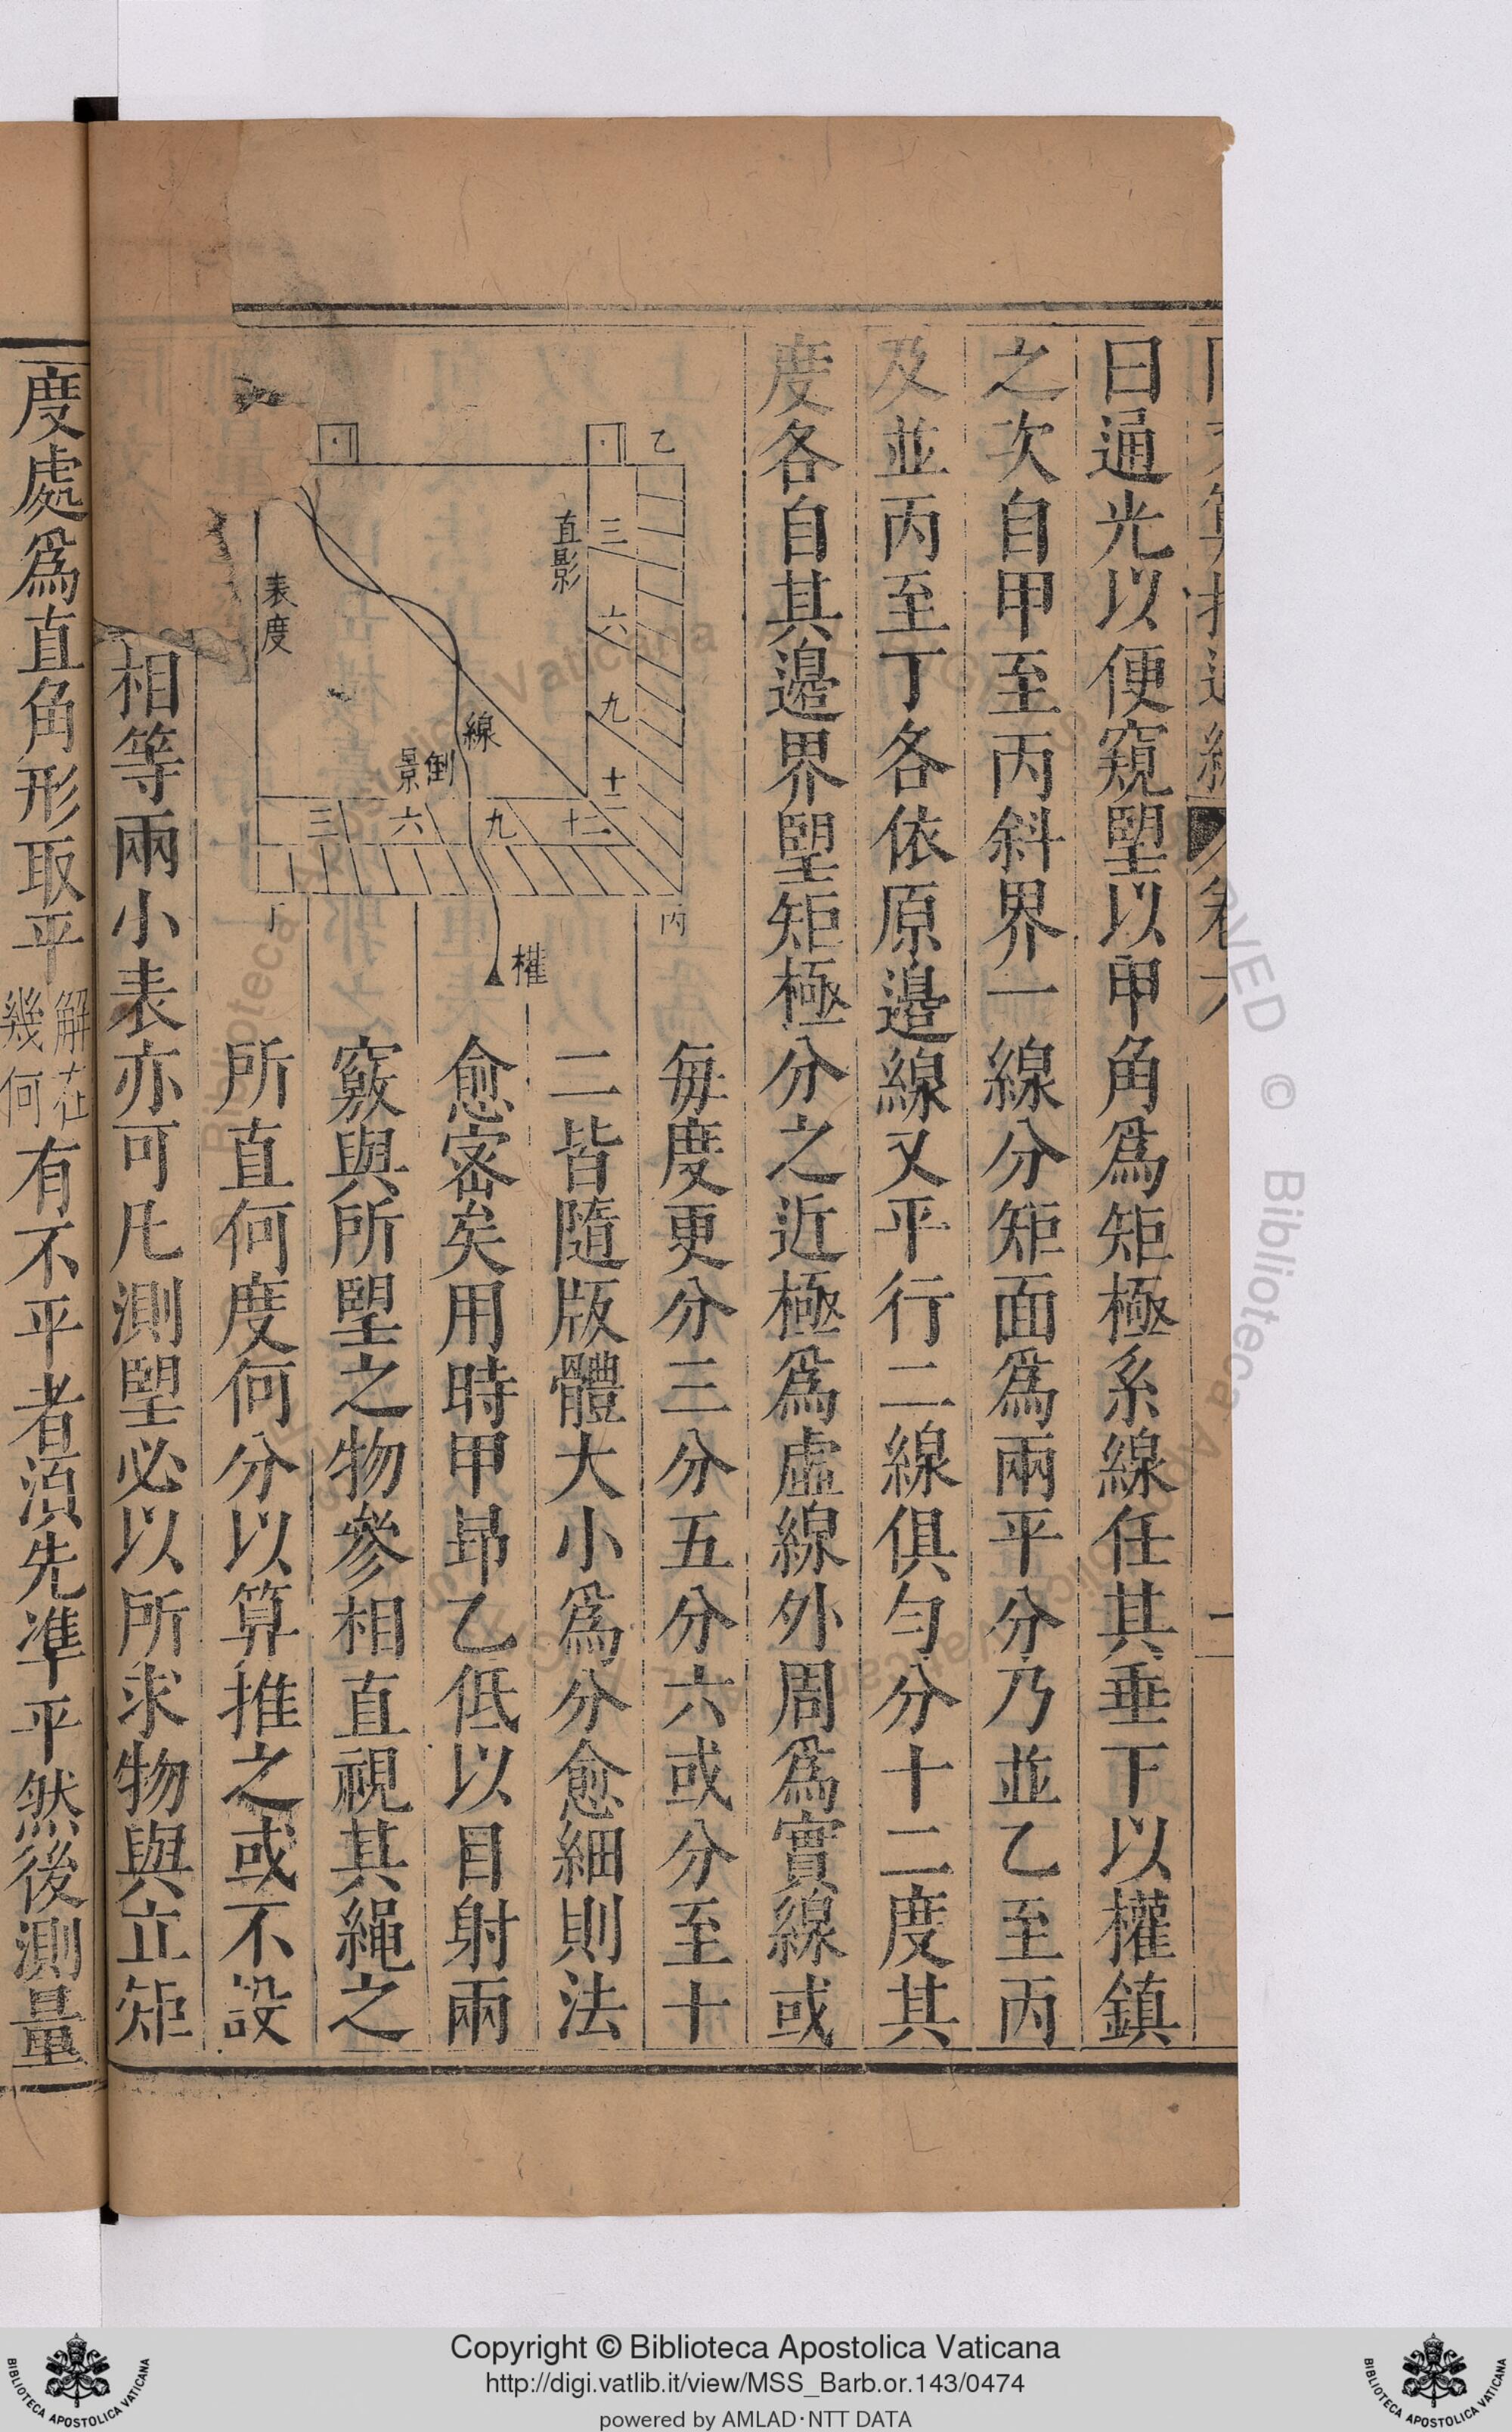 曰通光以便窺望以甲角爲矩極系線任其垂下以權鎮
之次自甲至丙斜界一線分矩面爲兩平分乃並乙至丙
及並丙至丁各依原邉線又平行二線俱勻分十二度其
度各自其邉界望矩極分之近極爲虛線外周爲實線或
每度更分三分五分六或分至十
二皆隨版體大小爲分愈細則法
愈密矣用時甲昻乙低以目射兩
竅與所望之物參相直視其繩之
所直何度何分以算推之或不設
相等兩小表亦可凡測望必以所求物與立矩
乙
直影
三
六
九
十二
表度
線
倒景
三
六
九
十二
丁
丙
權
度處爲直角形取平
解在
幾何
有不平者須先準平然後測量
Copyright © Biblioteca Apostolica Vaticana
http://digi.vatlib.it/view/MSS_Barb.or.143/0474
powered by AMLAD·NTT DATA
BIBLIOTECA APOSTOLICA VATICANA
BIBLIOTECA APOSTOLICA VATICANA